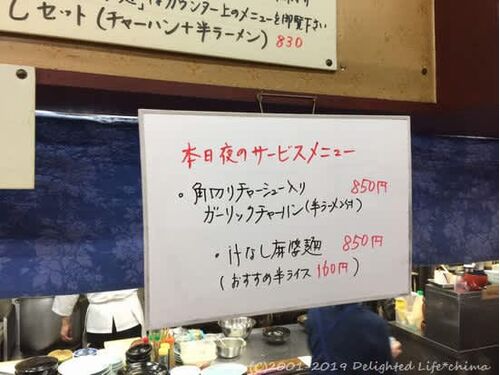 はカウンター上のメニューを御覧下さい
Cセット(チャーハン+半ラーメン) 830
本日夜のサービスメニュー
・角切りチャーシュー入り 850円
ガーリックチャーハン(半ラーメン付)
・汁なし麻婆麺 850円
(おすすめ半ライス160円)
(C)2001-2019 Delighted Life*chima